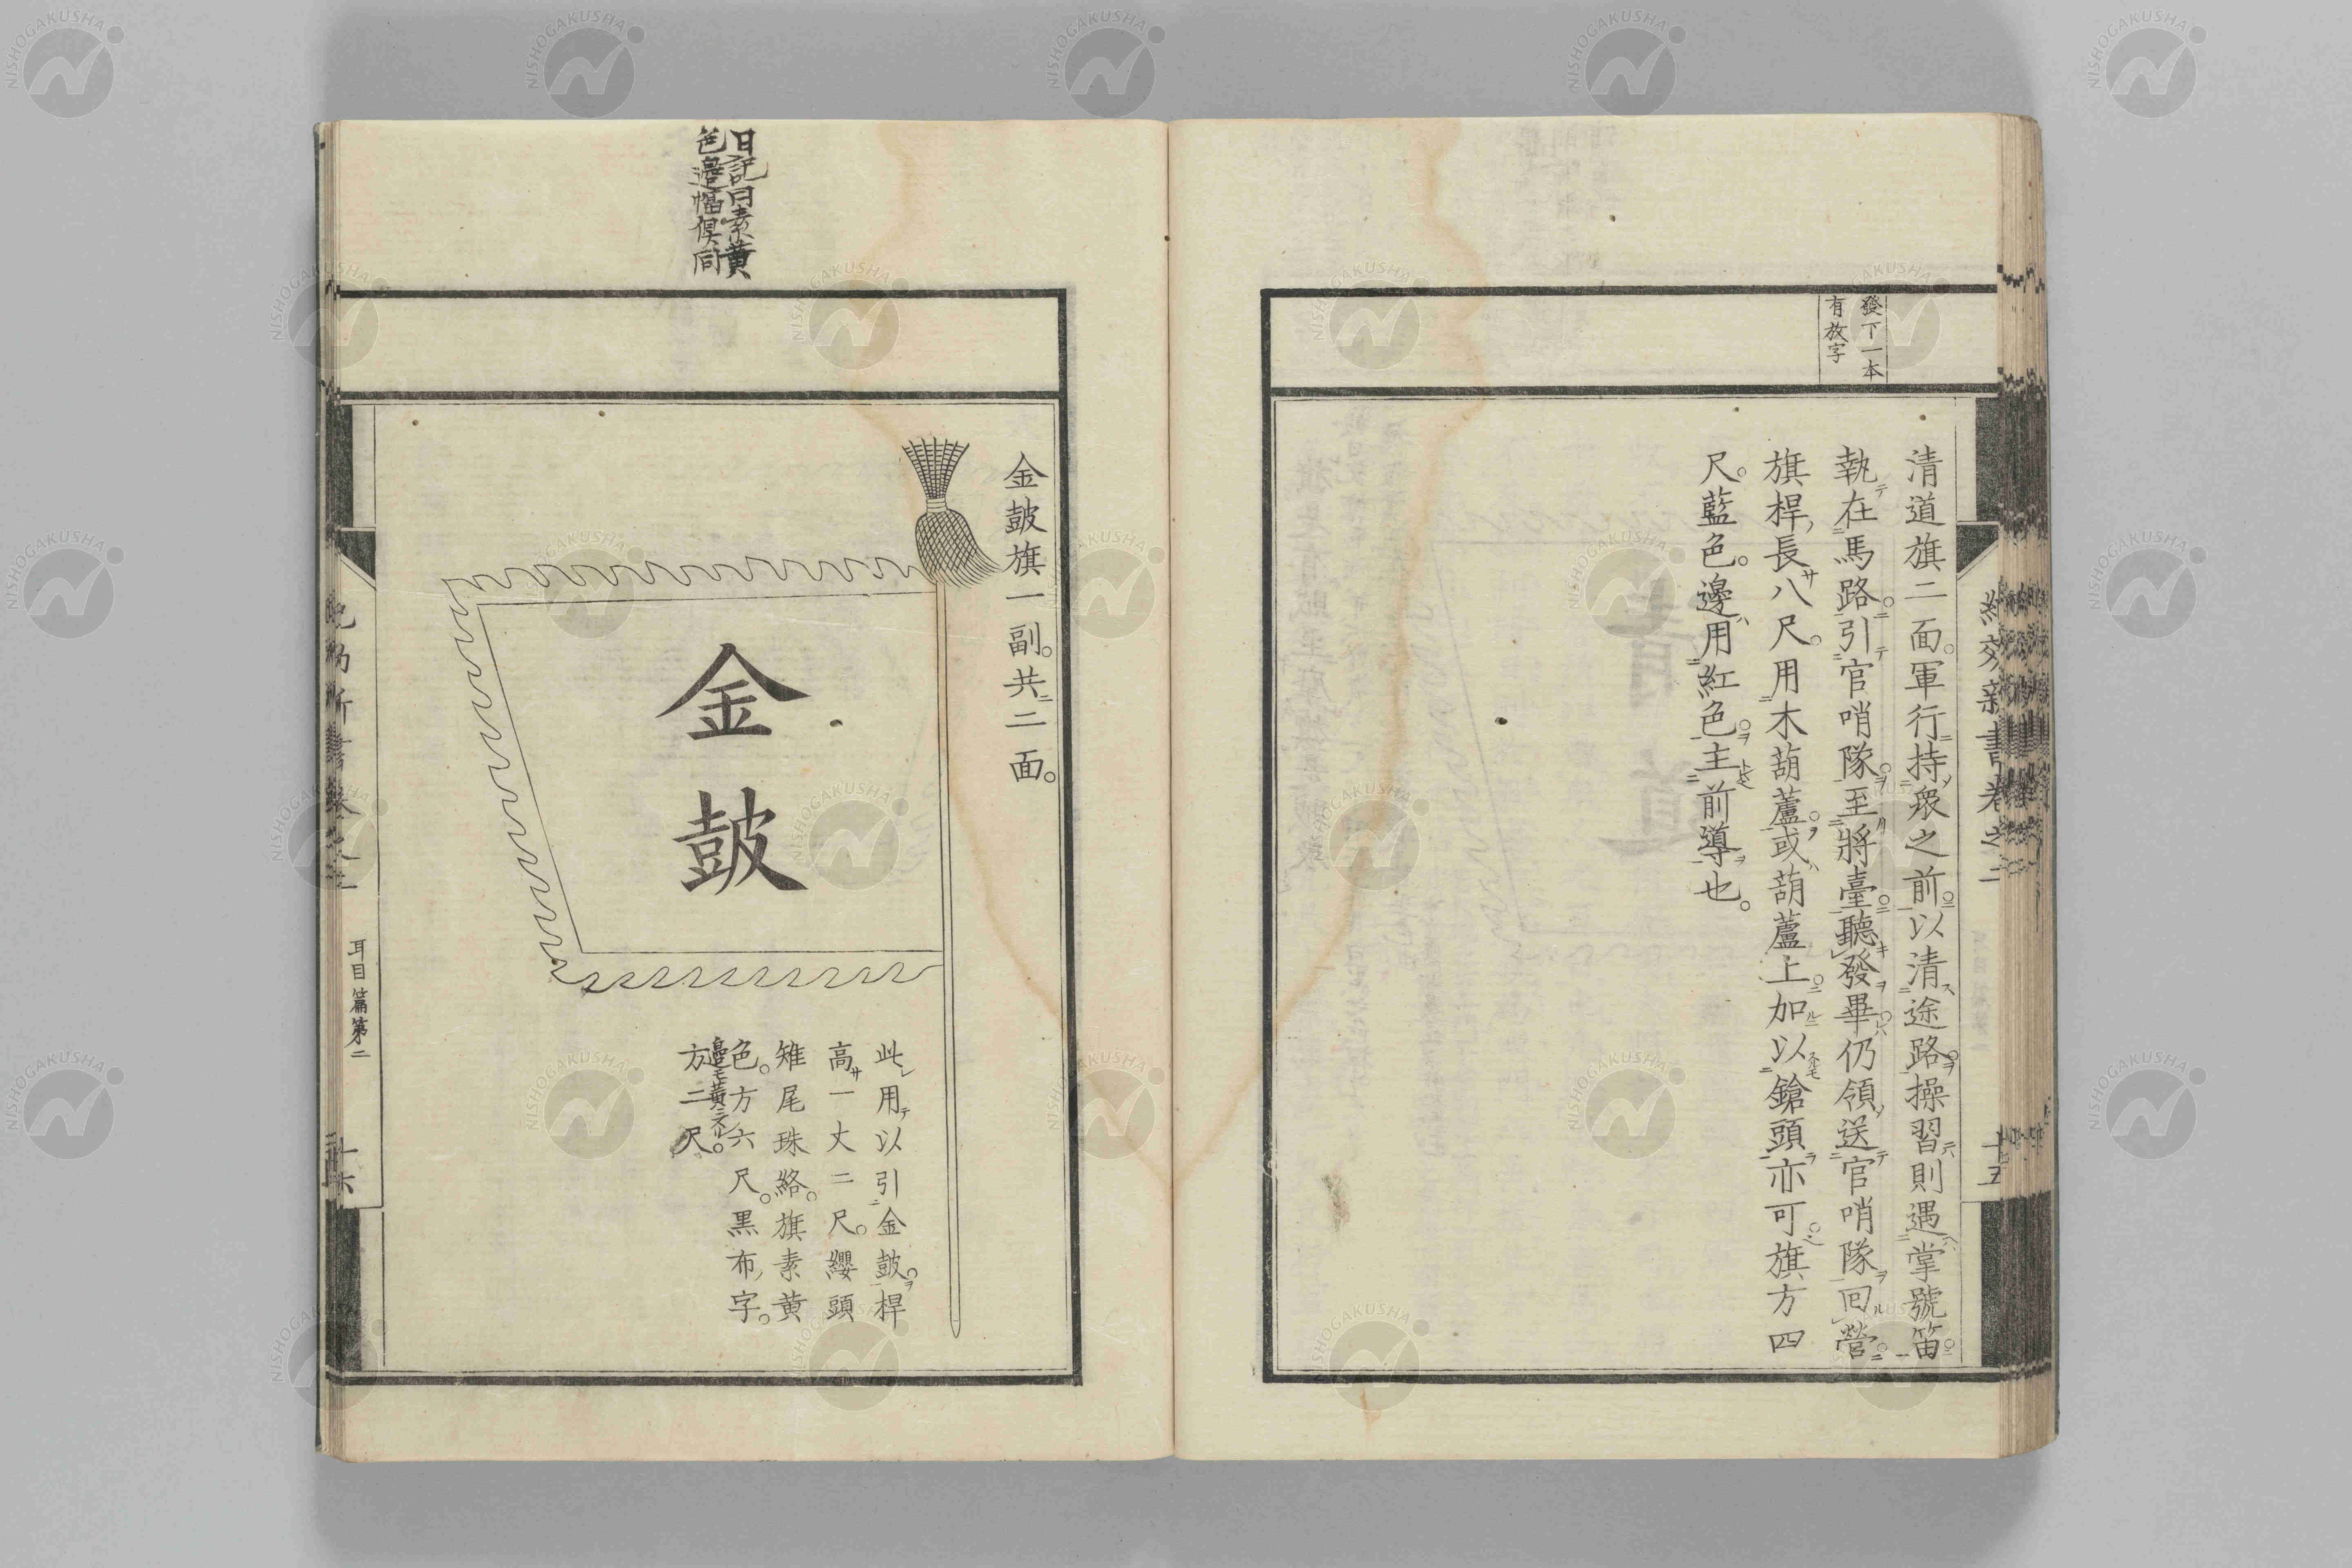 發下一本
有放字
清道旗二面。軍行持衆之前。以清途路。操習則遇掌號笛。
執在馬路。引官哨隊。至將臺。聽發畢。仍領送官哨隊回營。
旗桿長八尺。用木葫蘆。或葫蘆上。加以鎗頭亦可。旗方四
尺。藍色。邊用紅色。主前導也。
紀效新書卷之二
十五
日記曰素黄
色邊幅俱同
金鼓旗一副。共二面。
金鼓
此用以引金鼓。桿
高一丈二尺。纓頭
雉尾珠絡。旗素黄
色。方六尺。黒布字。
邊モ黄ニスル。
方二尺。
耳目篇第二
十六
NISHOGAKUSHA